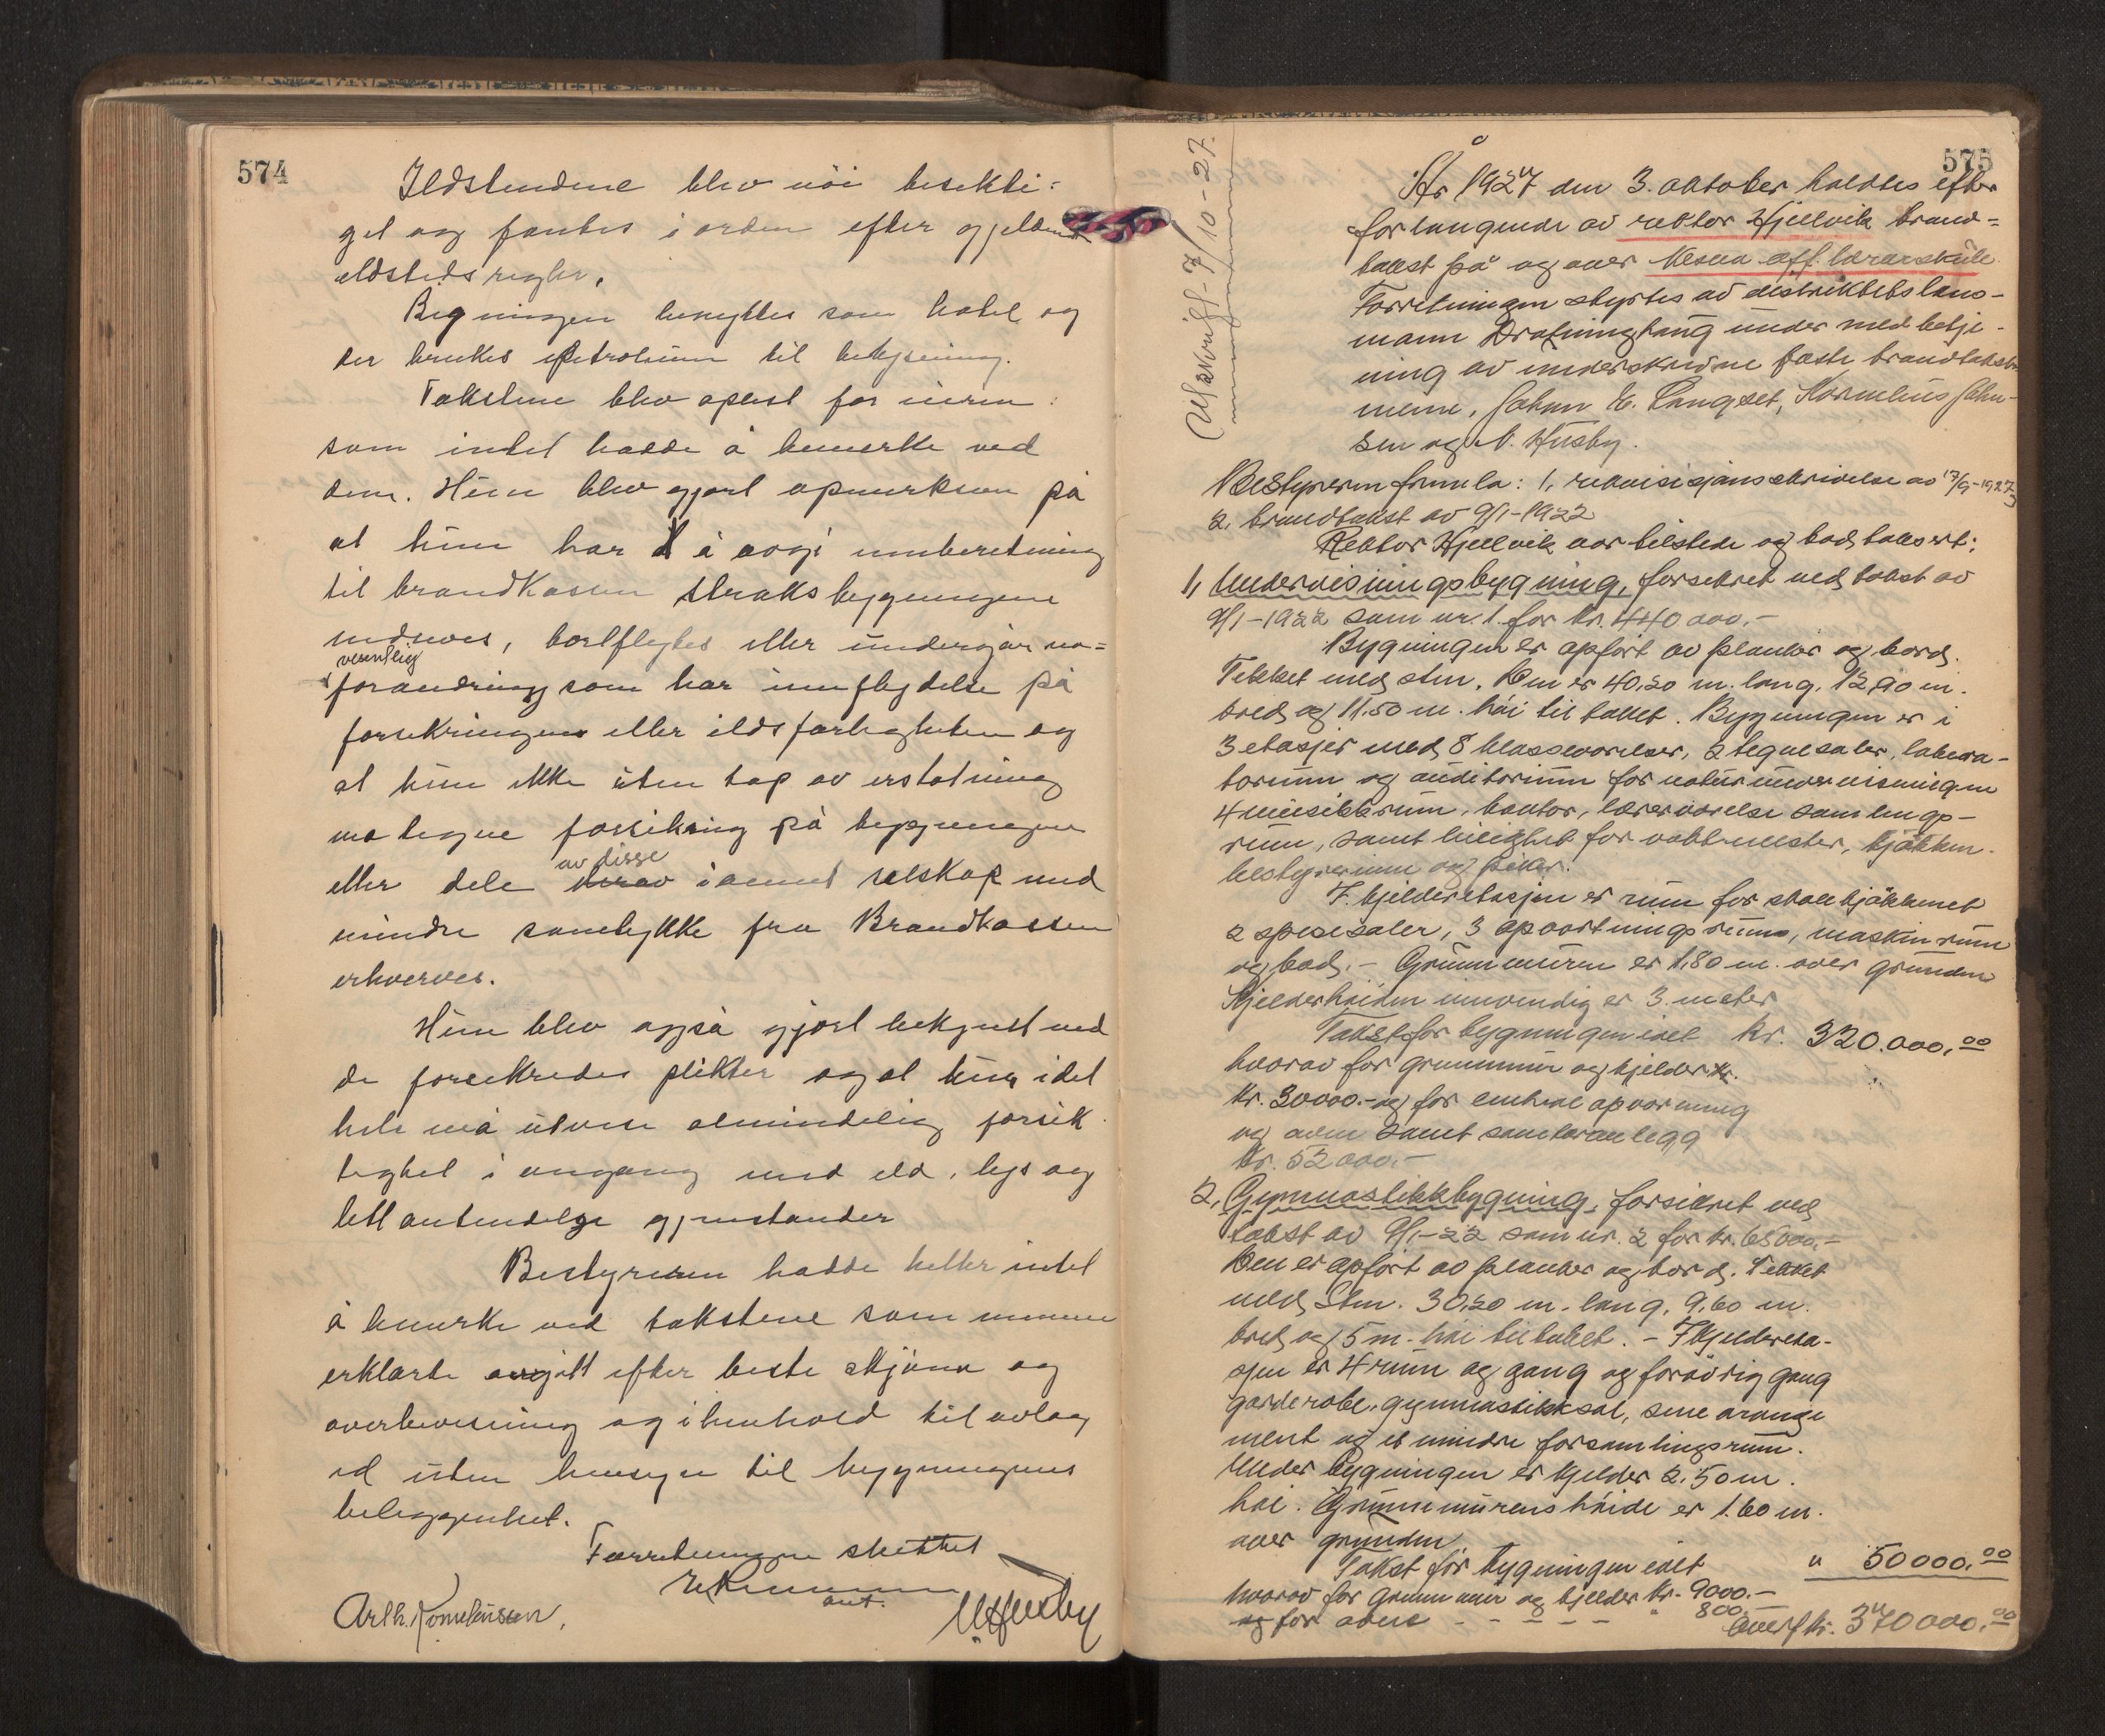 574
Ildstedene blev nöi besikti-
get og fantes i orden efter gjeldende
ildstedsregler.
Bygningen benyttes som hotel og
der brukes petroleum til belysning.
Takstene blev oplest for eieren
som intet hadde å bemerke ved
dem. Hun blev gjort opmerksom på
at hun har å avgi innberetning
til brandkassen straks bygningene
nedrives, bortflyttes eller undergår no-
vesentlig
forandring som har innflydelse på
forsikringen eller ildsfarligheten og
at hun ikke uten tap av erstatning
må tegne forsikring på bygningene
av disse
eller dele derav i annet selskap med
mindre samtykke fra Brandkassen
erhverves.
Hun blev også gjort bekjent med
de forsikredes plikter og at hun i det
hele må utvise almindelig forsik-
tighet i omgang med ild, lys og
lett antendelige gjenstander
Bestyreren hadde heller intet
å bemerke ved takstene som mennene
erklærte avgitt efter beste skjönn og
overbevisning og i henhold til avlagt
ed uten hensyn til bygningenes
beliggenhet.
Forretningen sluttet
Arth. Korneliussen,
ant.
M Husby
575
Utskrift 7/10-27.
År 1927 den 3. oktober holdtes efter
forlangende av rektor Hjellvik brand-
takst på og over Nesna off. lærarskule.
Forretningen styrtes av distriktets lens-
mann Drotninghaug under medbetje-
ning av underskrevne faste brandtakst-
menn, Johan E. Langset, Kornelius John-
sen og M. Husby.
Bestyreren fremla: 1, rekvisisjonsskrivelse av 17/9-1927,
2, brandtakst av 9/1-1922
Rektor Hjellvik var tilstede og bad taksert:
1, Undervisningsbygning, forsikret ved takst av
9/1-1922 som nr. 1. for kr. 440 000.-
Bygningen er opfört av planker og bord.
Tekket med sten. Den er 40,20 m. lang, 12,90 m.
bred og 11.50 m. höi til taket. Bygningen er i
3 etasjer med 8 klasseværelser, 2 tegnesaler, labora-
torium og auditorium for naturundervisningen
4 musikkrum, kontor, lærerværelse samlings-
rum, samt leilighet for vaktmester, kjökken-
bestyrerinne og piker.
I kjelderetasjen er rum for skolekjökkenet
2 spisesaler, 3 opvartningsrum, maskinrum
og bad. - Grunnmuren er 1,80 m. over grunnen
Kjelderhöiden innvendig er 3. meter
Takst for bygningen ialt kr. 320.000,00
hvorav for grunnmur og kjelder
kr. 30000.- og for central opvarming
og ovner samt sanitæranlegg
kr. 52000.-
2, Gymnastikkbygning, forsikret ved
takst av 9/1-22 som nr. 2 for kr. 65000.-
Den er opfört av planker og bord. Tekket
med sten. 30,20 m. lang, 9,60 m.
bred og 5 m. höi til taket. - I kjeldereta-
sjen er 4 rum og gang og forövrig gang
garderobe, gymnastikksal, sene arange
ment og et mindre forsamlingsrum.
Under bygningen er kjelder 2,50 m.
höi. Grunnmurens höide er 1.60 m.
over grunnen
Takst for bygningen ialt " 50000,00
hvorav for grunnmur og kjelder kr. 9000.-
og for ovne - - - - - " 800.-
Overf. kr. 370000,00